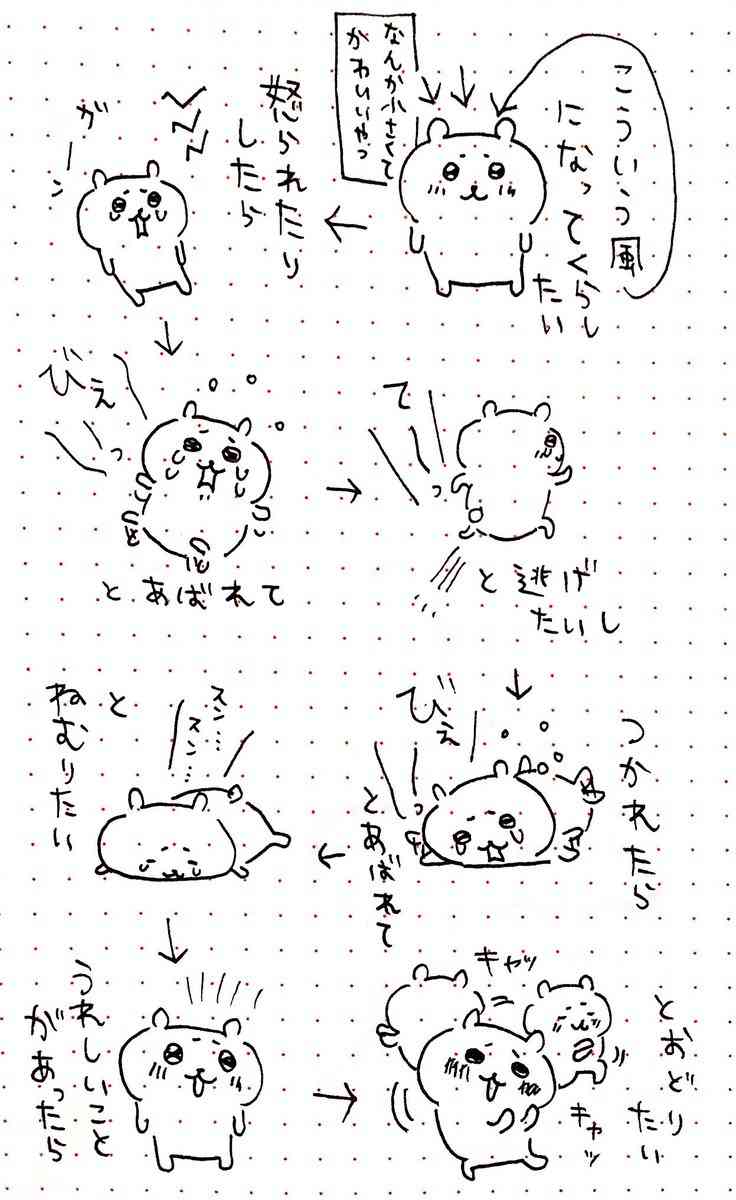 こういう風
になってくらし
たい
なんか小さくて
かわいいやつ
怒られたり
したら
がーン
びぇっ
とあばれて
てっ
と逃げ
たいし
つかれたら
びぇっ
とあばれて
スン…
スン…
と
ねむりたい
うれしいこと
があったら
キャッ
キャッ
とおどり
たい